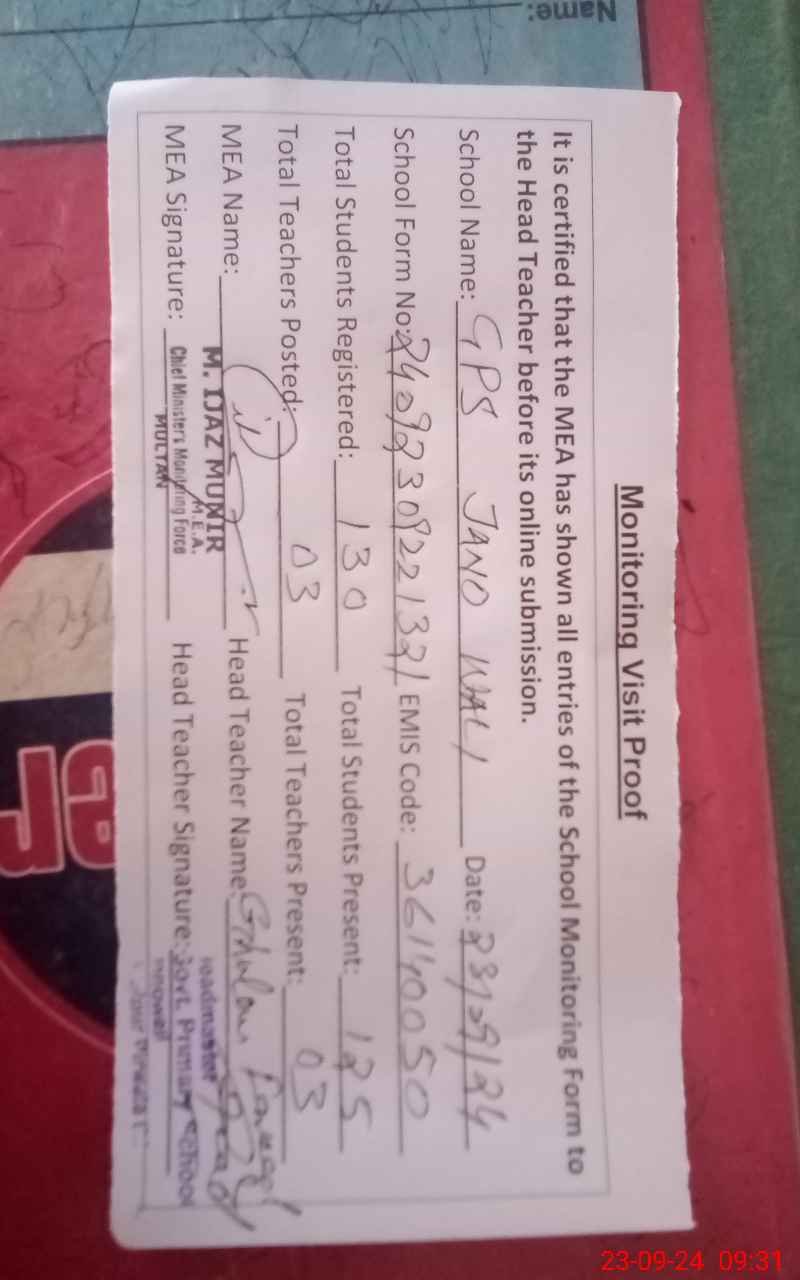 Name:
Monitoring Visit Proof
It is certified that the MEA has shown all entries of the School Monitoring Form to
the Head Teacher before its online submission.
School Name: GPS JANO WALI Date: 23/09/24
School Form No: 24092309221321 EMIS Code: 36140050
Total Students Registered: 130 Total Students Present: 125
Total Teachers Posted: 03 Total Teachers Present: 03
MEA Name: Head Teacher Name:
M. IJAZ MUNIR
M.E.A.
MEA Signature: Chief Minister's Monitoring Force Head Teacher Signature:
MULTAN
Headmaster
Govt. Primary School
23-09-24 09:31